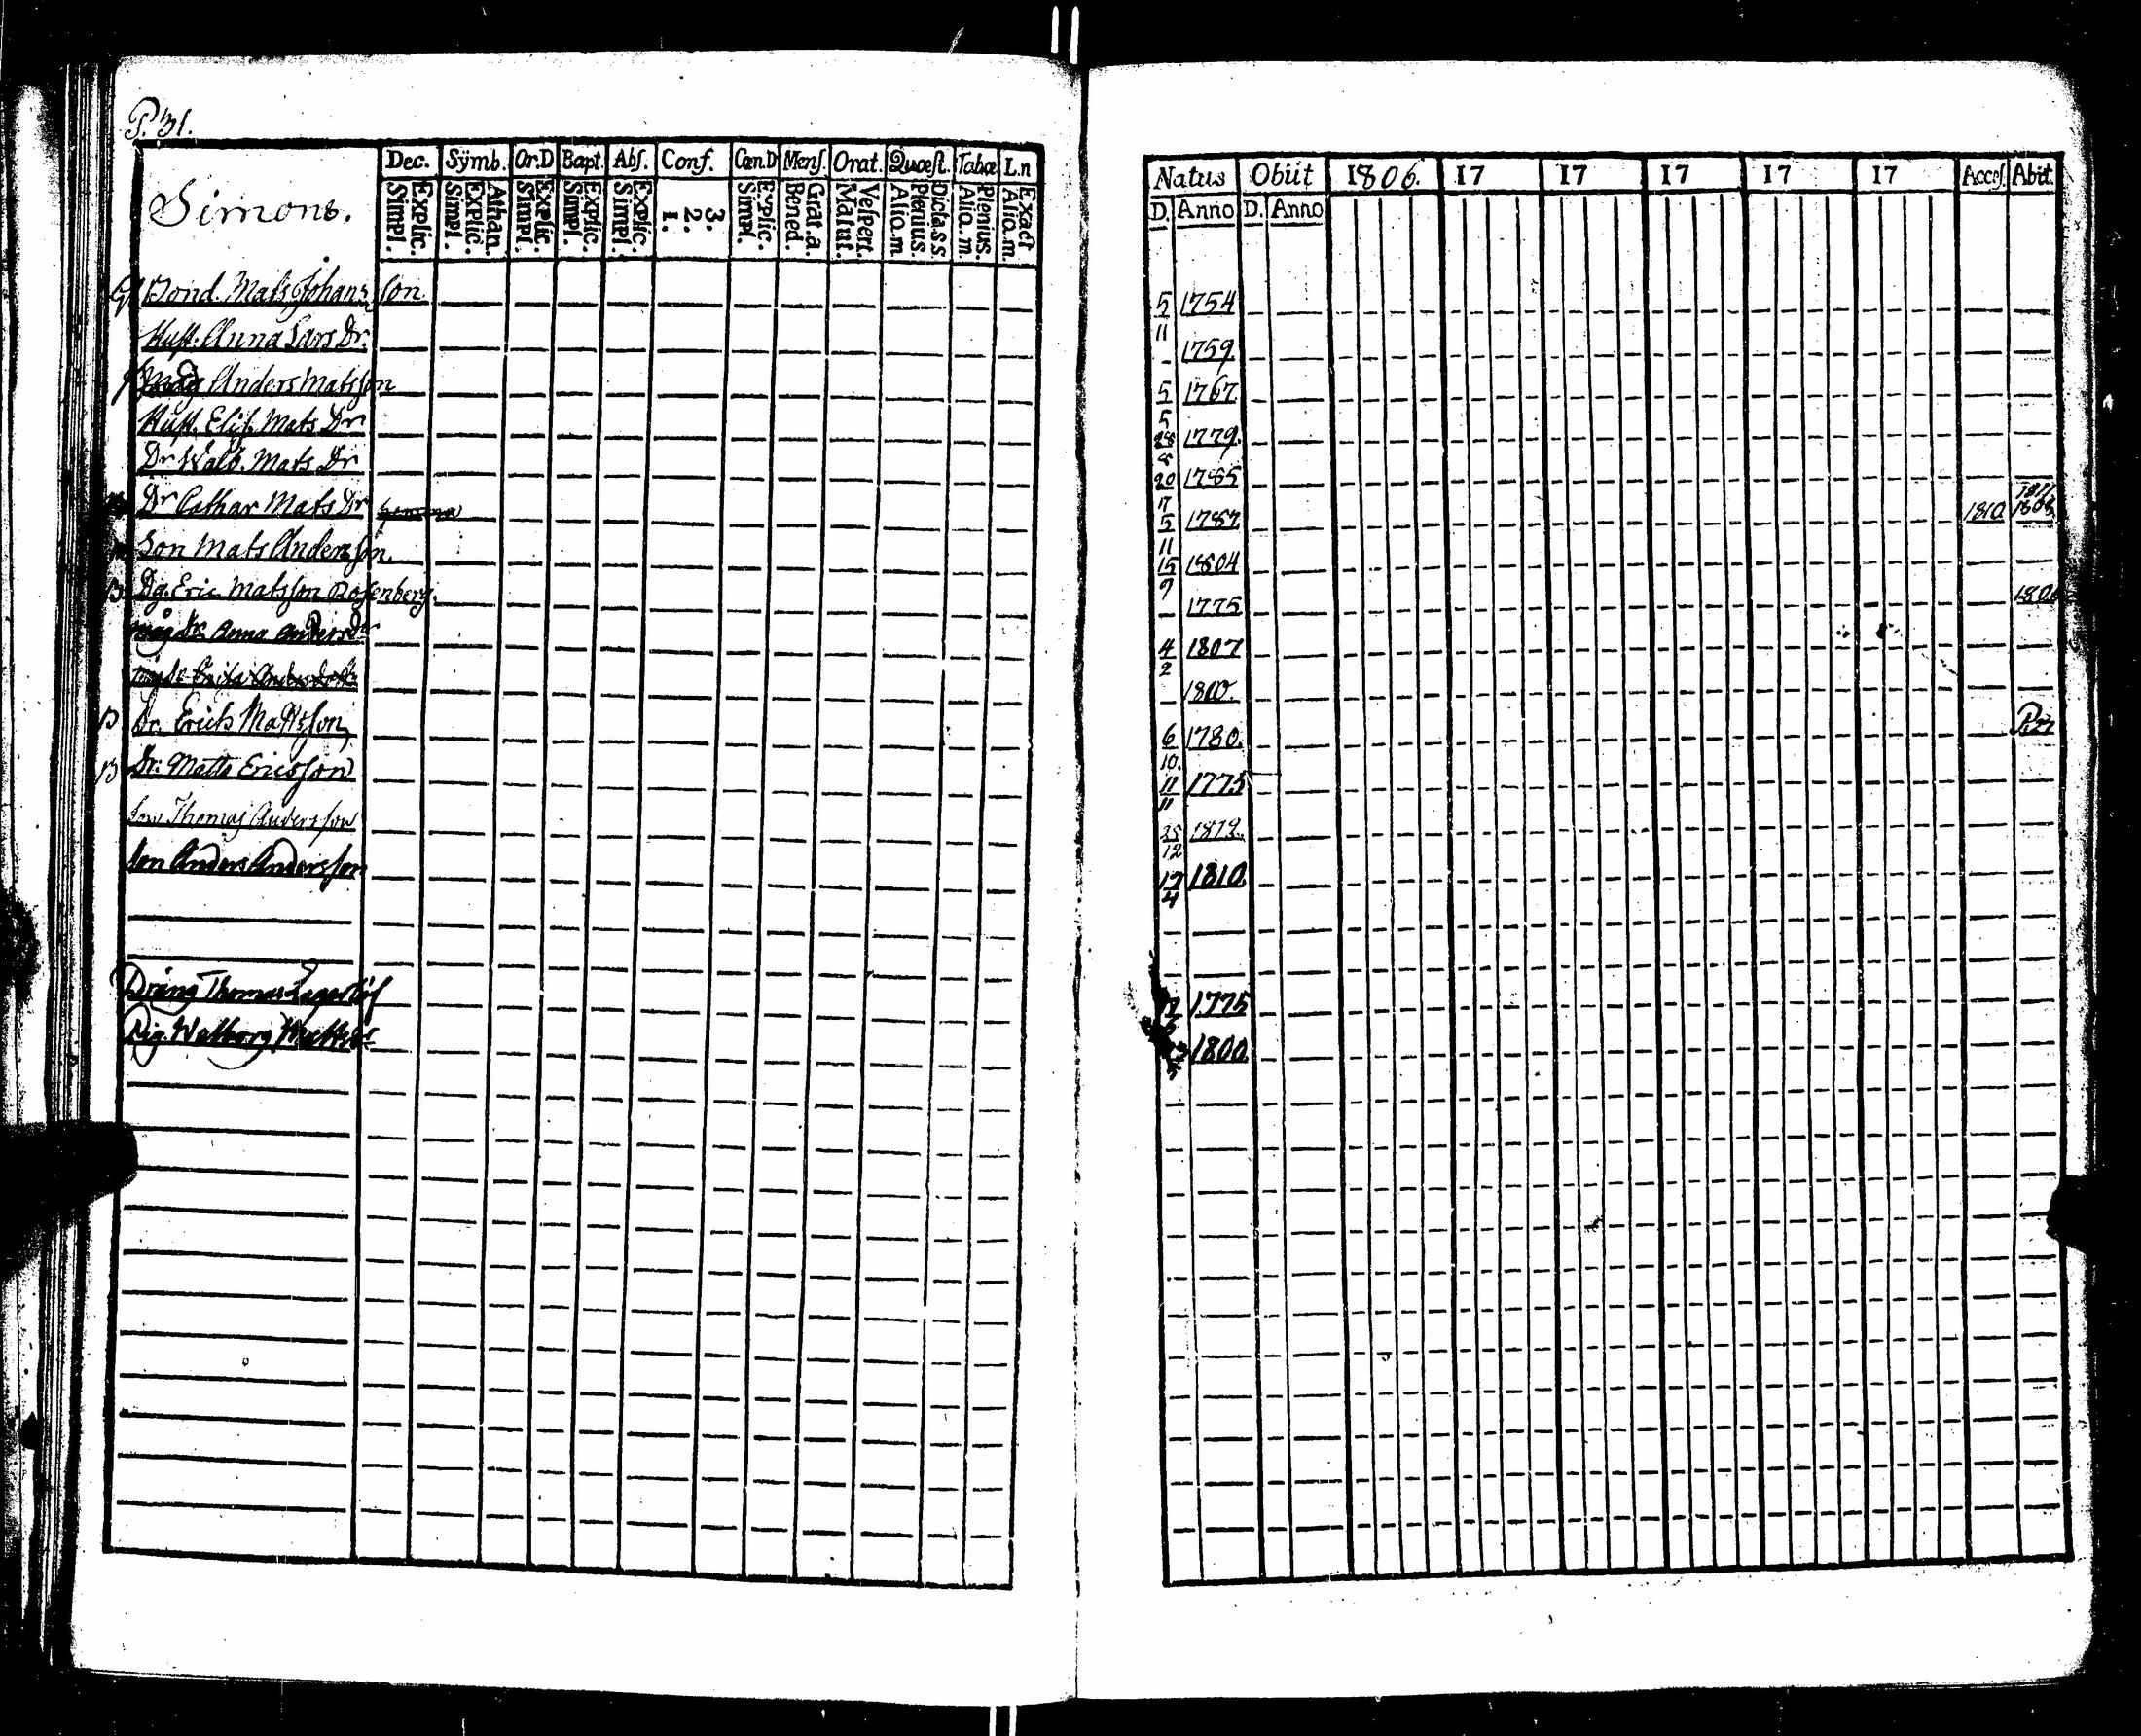 P. 31.
Dec. Sÿmb. Or.D Bapt. Abſ. Conf. Cœn.D Menſ. Orat. Quæſt. Tabæ L.n
Simons.
Simpl. Explic. Simpl. Explic. Athan. Simpl. Explic. Simpl. Explic. Simpl. Explic. 1. 2. 3. Simpl. Explic. Bened. Grat.a. Matut. Veſpert. Alio.m Plenius. Dicta.s.s. Alio.m. Plenius. Alio.m. Exact
Natus Obiit 1806. 17 17 17 17 17 Acceſ. Abiit.
D. Anno D. Anno
Bond. Mats Johansson 5/11 1754
Hust. Anna Lars Dr. 1759
Anders Matsson 5/5 1767
Hust. Elis. Mats Dr 28/8 1779.
Dr Walb. Mats Dr 20/17 1785
Dr Cathar Mats Dr 5/11 1787 1810 1811 1808
Son Mats Andersson 15/7 1804
Dg. Eric Matsson Rosenberg. 1775 1806
Dr. Anna Anders Dr 4/2 1807
1810.
Dr. Erick Mattsson 6/10. 1780.
Dr: Matts Ericsson 11/11 1775
Son Thomas Andersson 25/12 1812.
Son Anders Andersson 17/4 1810.
Dräng Thomas Lagerlöf 1775
Pig. Walborg Matts Dr 1800.